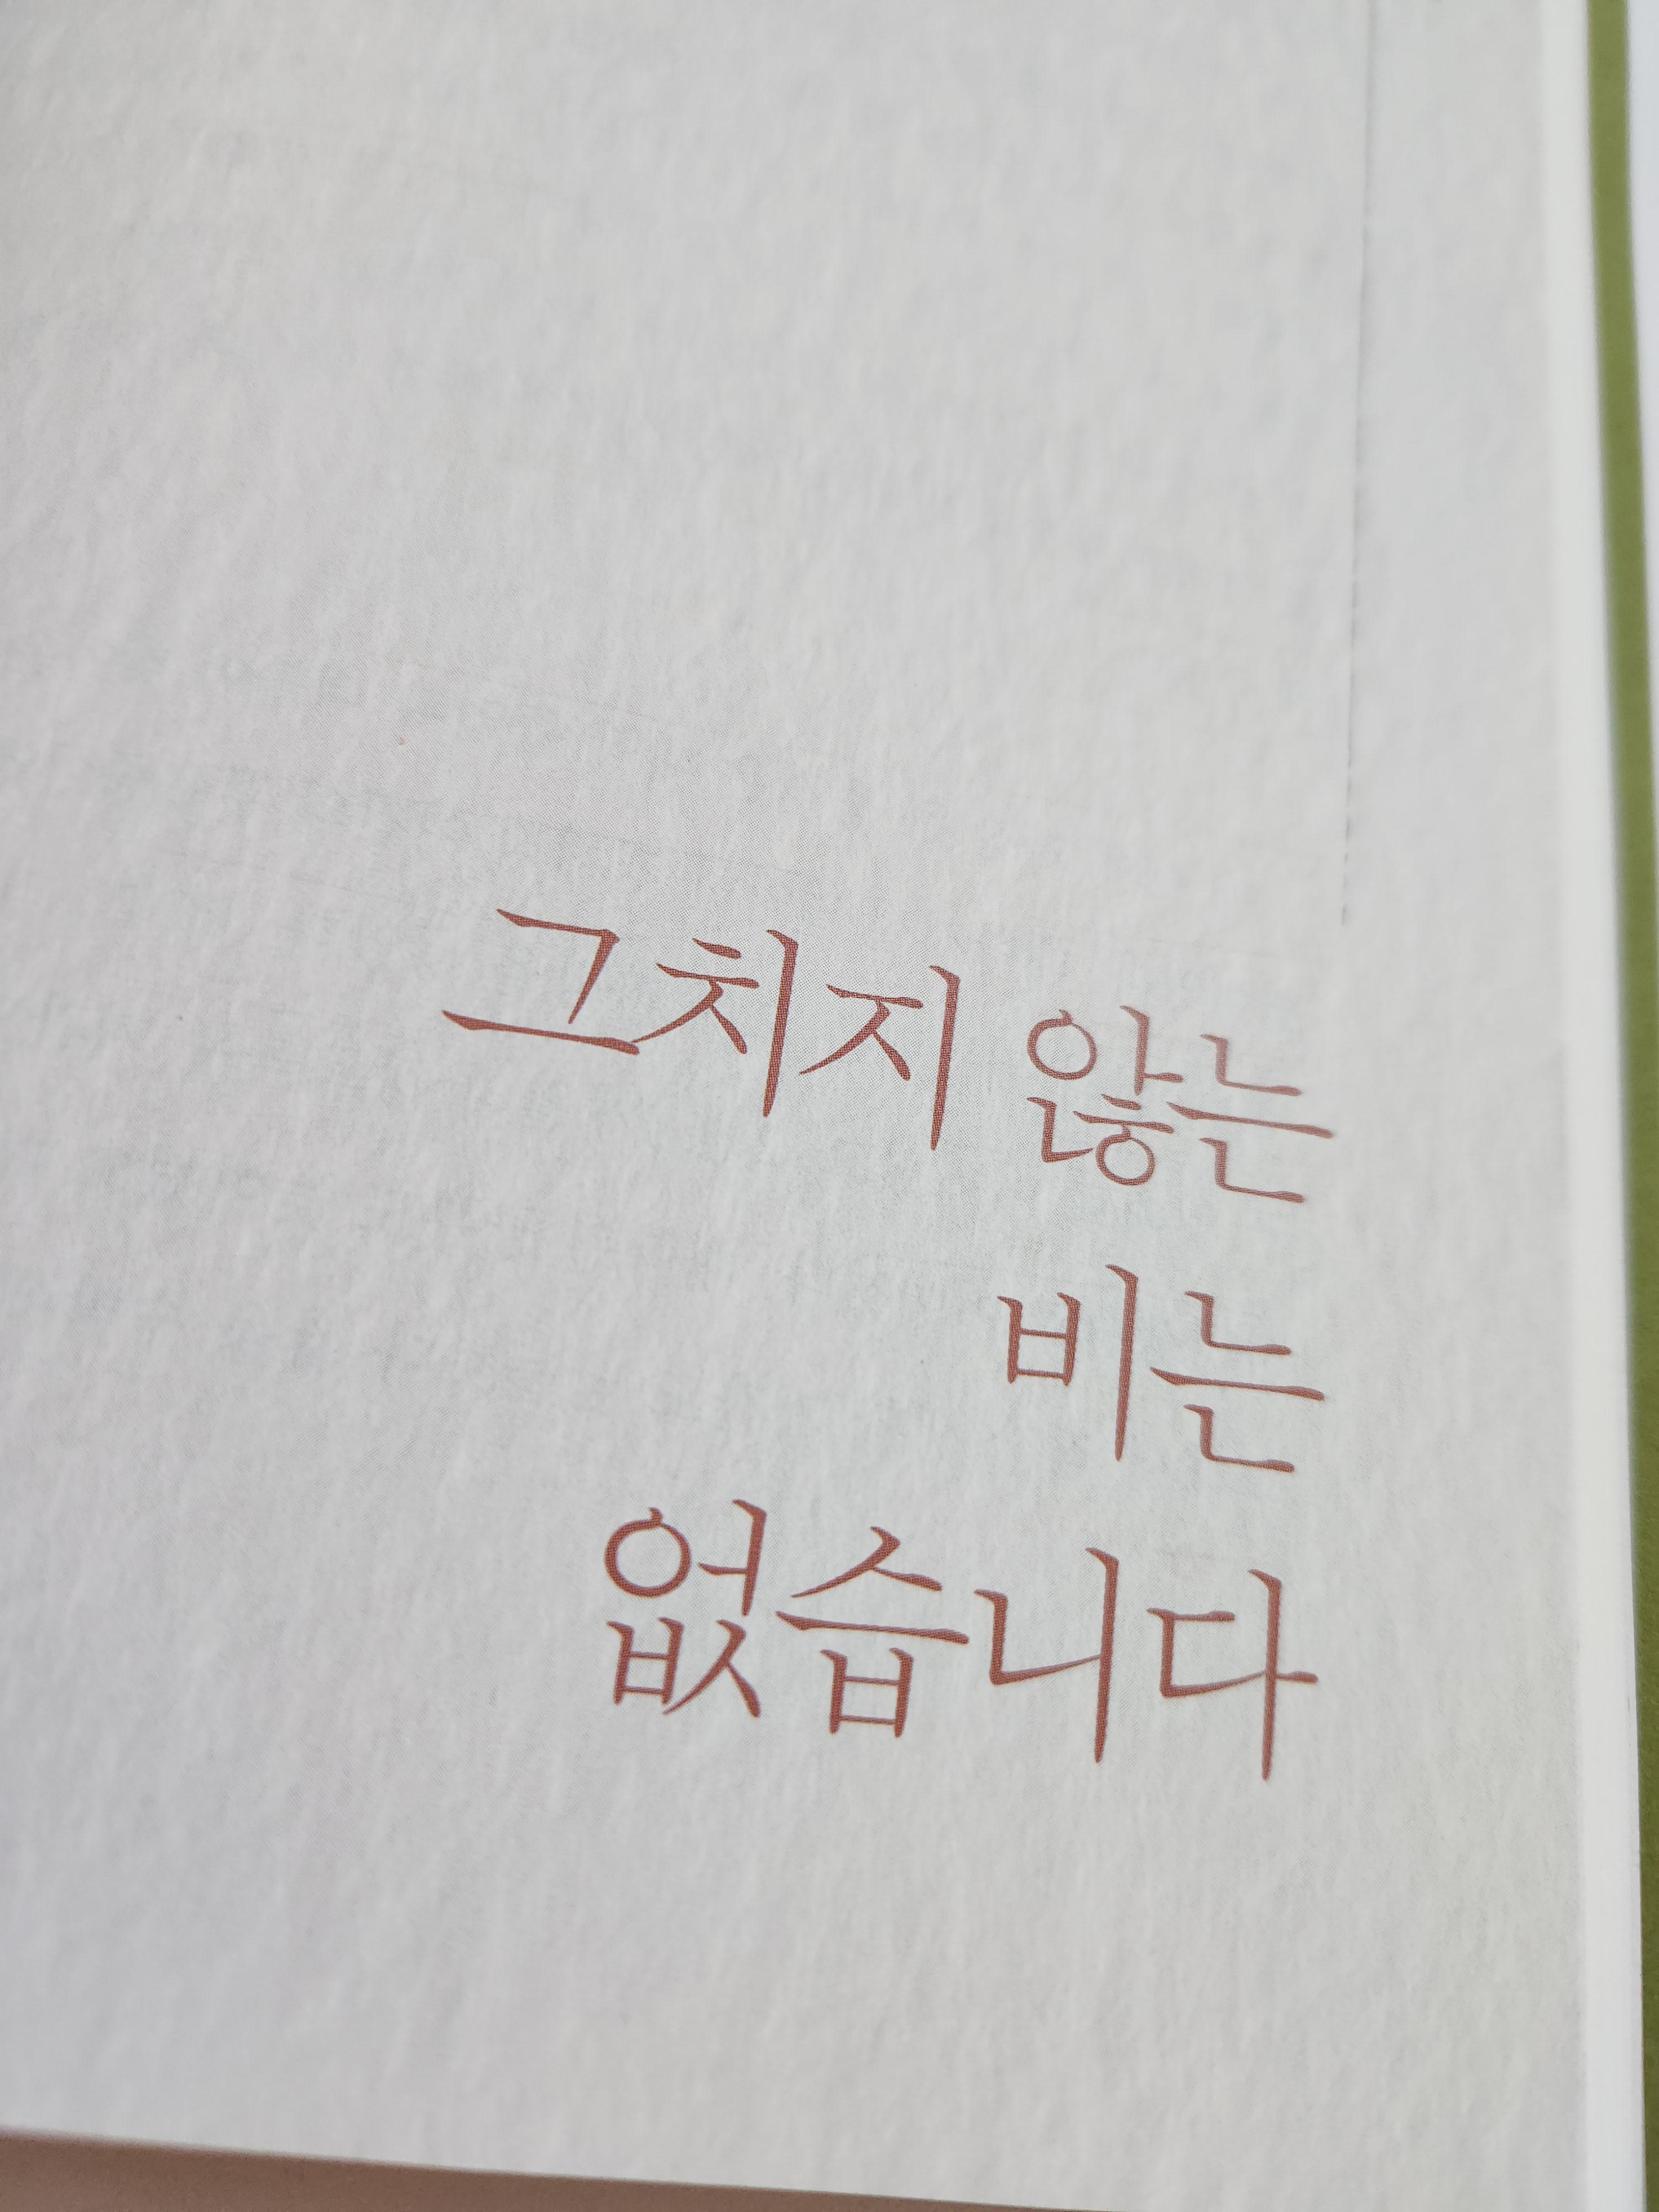 그치지 않는
비는
없습니다